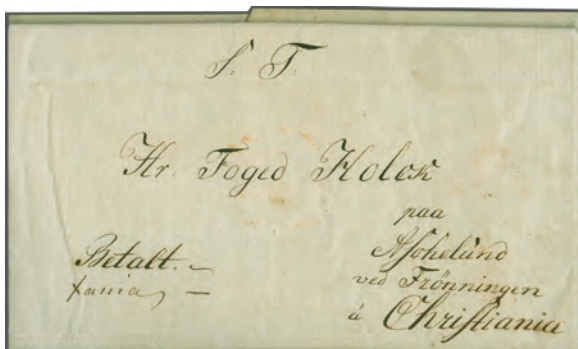 S. T.
Hr. Foged Holck
paa
Aschelund
ved Frönningen
á Christiania
Betalt. -
Xania, -